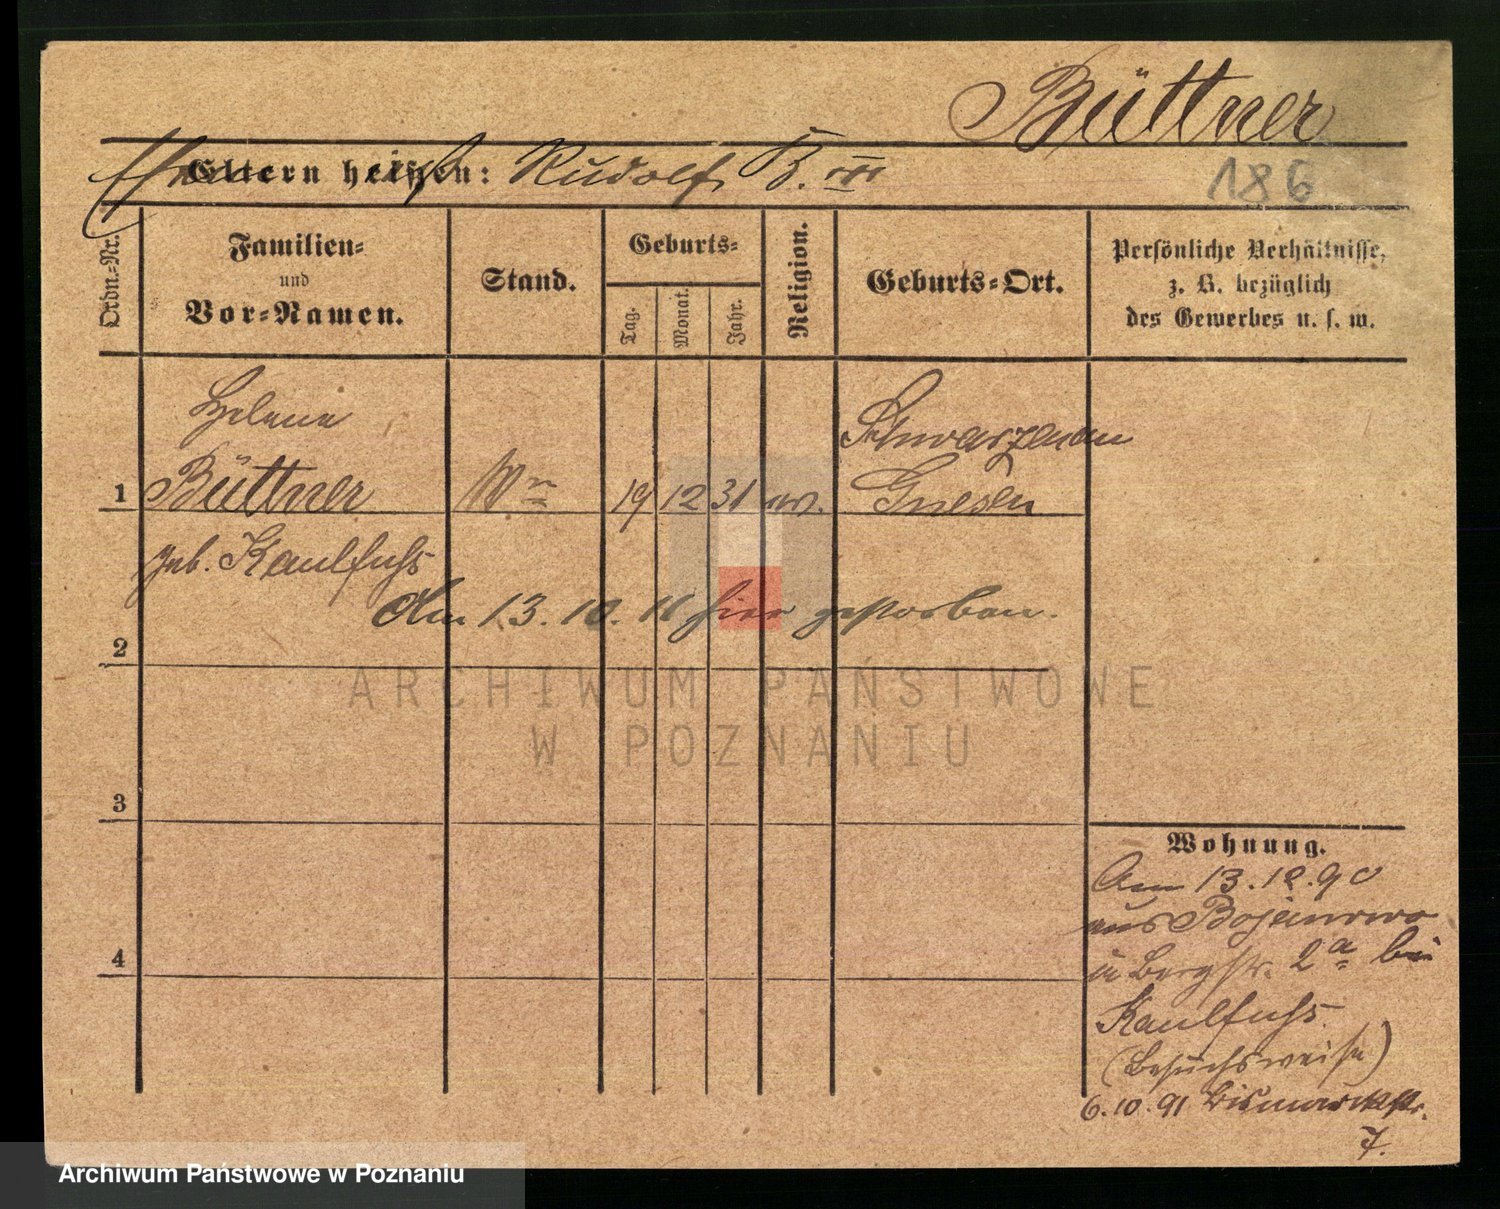 Büttner
Eltern heißen: Rudolf B. III
186
Ordn.-Nr.
Familien-
und
Vor-Namen.
Stand.
Geburts-
Tag.
Monat.
Jahr.
Religion.
Geburts-Ort.
Persönliche Verhältnisse,
z. B. bezüglich
des Gewerbes u. s. w.
Helene
Schwarzenau
1 Büttner Wwe 19 12 31 ev. Gnesen
geb. Kaulfuhs
Am 13.10.11 hier gestorben.
2
3
4
Wohnung.
Am 13.12.90
aus Bojanowo
in Bergstr. 2a bei
Kaulfuhs
(besuchsweise)
6.10.91 Bismarckstr.
7.
ARCHIWUM PAŃSTWOWE
W POZNANIU
Archiwum Państwowe w Poznaniu